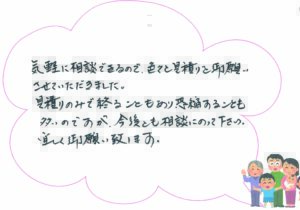 気軽に相談できるので、色々と見積りを御願い
させていただきました。
見積りのみで終ることもあり恐縮することも
多いのですが、今後とも相談にのって下さい。
宜しく御願い致します。